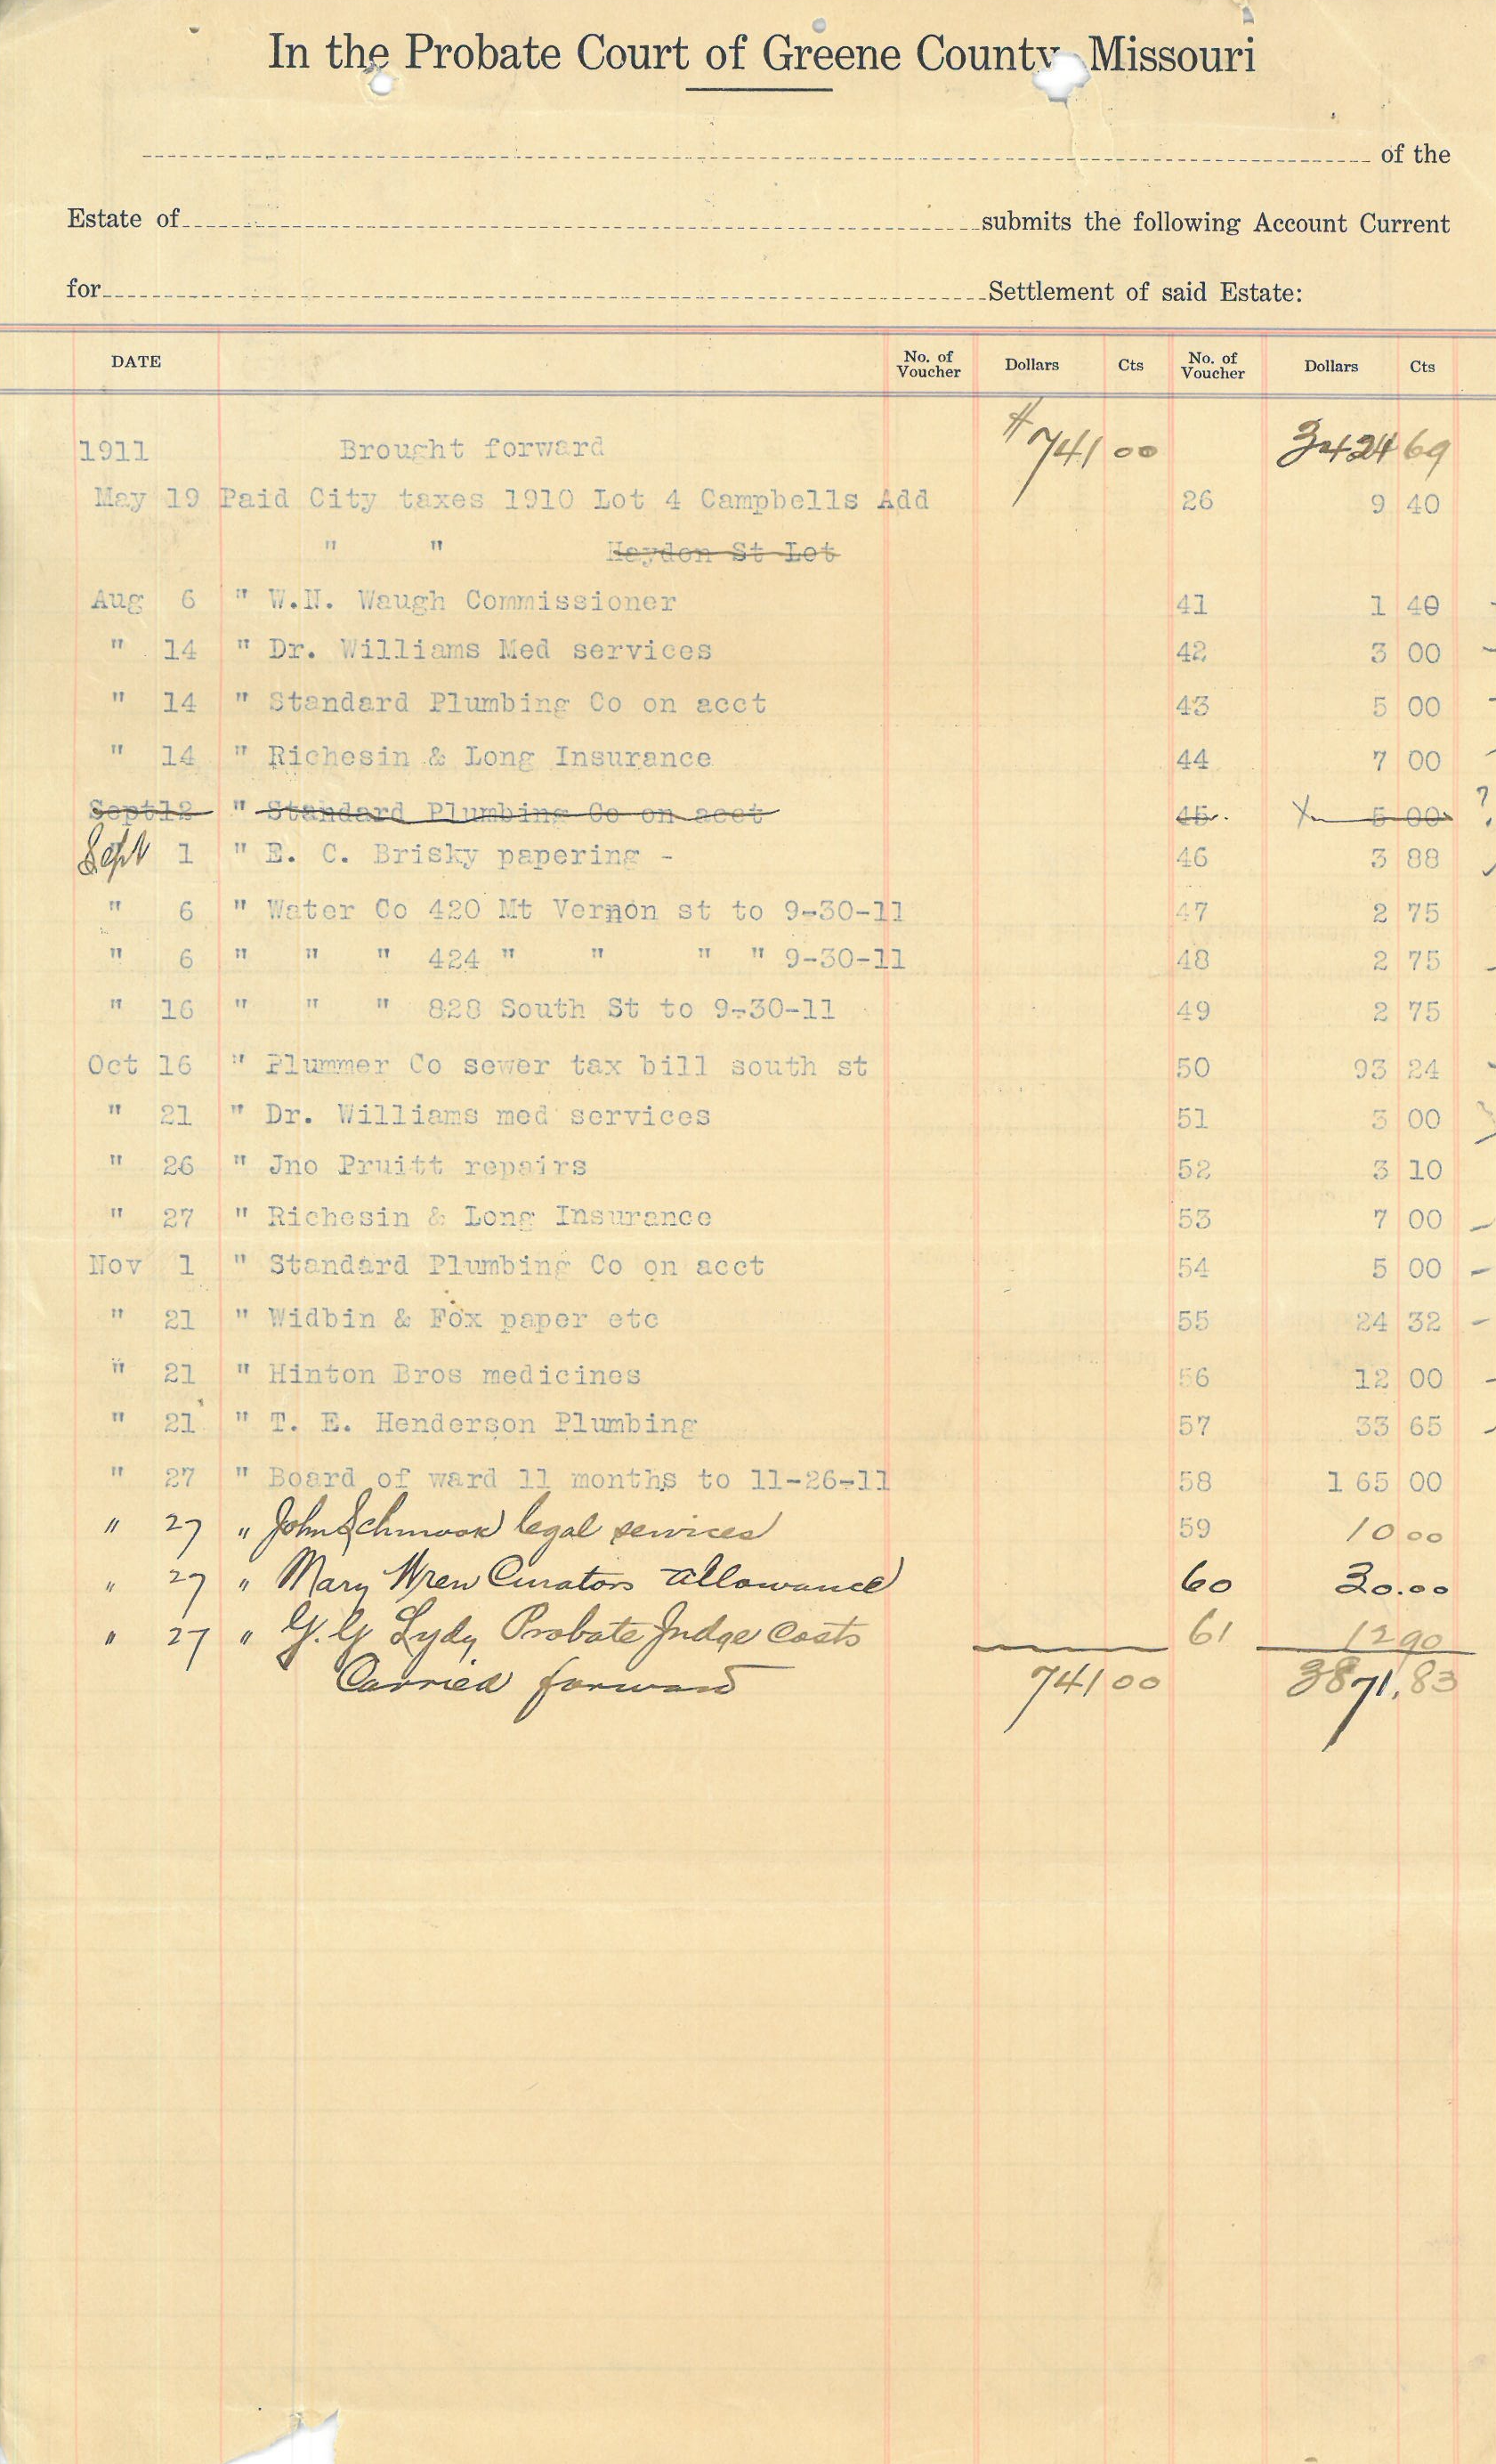 In the Probate Court of Greene County Missouri
of the
Estate of submits the following Account Current
for Settlement of said Estate:
DATE No. of Voucher Dollars Cts No. of Voucher Dollars Cts
1911 Brought forward $741 00 3424 69
May 19 Paid City taxes 1910 Lot 4 Campbells Add 26 9 40
" " Haydon St Lot
Aug 6 " W.N. Waugh Commissioner 41 1 40
" 14 " Dr. Williams Med services 42 3 00
" 14 " Standard Plumbing Co on acct 43 5 00
" 14 " Richesin & Long Insurance 44 7 00
Sept 12 " Standard Plumbing Co on acct 45 X 5 00 ?
Sept 1 " E. C. Brisky papering - 46 3 88
" 6 " Water Co 420 Mt Vernon st to 9-30-11 47 2 75
" 6 " " " 424 " " " " 9-30-11 48 2 75
" 16 " " " 828 South St to 9-30-11 49 2 75
Oct 16 " Plummer Co sewer tax bill south st 50 93 24
" 21 " Dr. Williams med services 51 3 00
" 26 " Jno Pruitt repairs 52 3 10
" 27 " Richesin & Long Insurance 53 7 00
Nov 1 " Standard Plumbing Co on acct 54 5 00
" 21 " Widbin & Fox paper etc 55 24 32
" 21 " Hinton Bros medicines 56 12 00
" 21 " T. E. Henderson Plumbing 57 33 65
" 27 " Board of ward 11 months to 11-26-11 58 1 65 00
" 27 " John Schmook legal services 59 10 00
" 27 " Mary Wren Curators allowance 60 30.00
" 27 " G. G Lydy Probate Judge Costs 61 12 90
Carried forward 741 00 3871.83